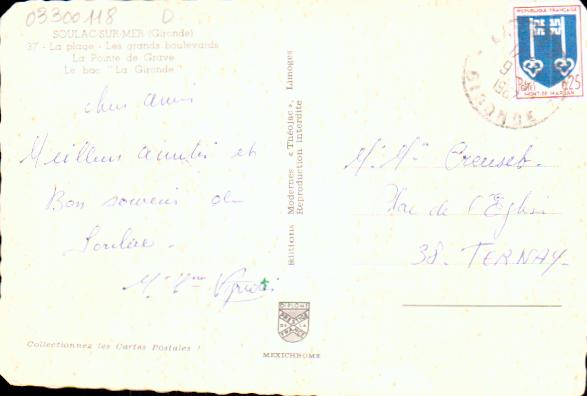 03300118 D
SOULAC-SUR-MER (Gironde)
37 - La plage - Les grands boulevards
La Pointe de Grave
Le bac "La Gironde"
chers amis
Meilleurs amitiés et
Bon souvenir de
Soulac -
Mr Mme
Editions Modernes « Théojac », Limoges
Reproduction Interdite
DIPLOME
PRESTIGE
DE LA
FRANCE
MEXICHROME
Collectionnez les Cartes Postales !
REPUBLIQUE FRANÇAISE
Postes 0,25
MONT-DE-MARSAN
Mr Mme Creuset -
Place de l'Eglise
38. TERNAY -